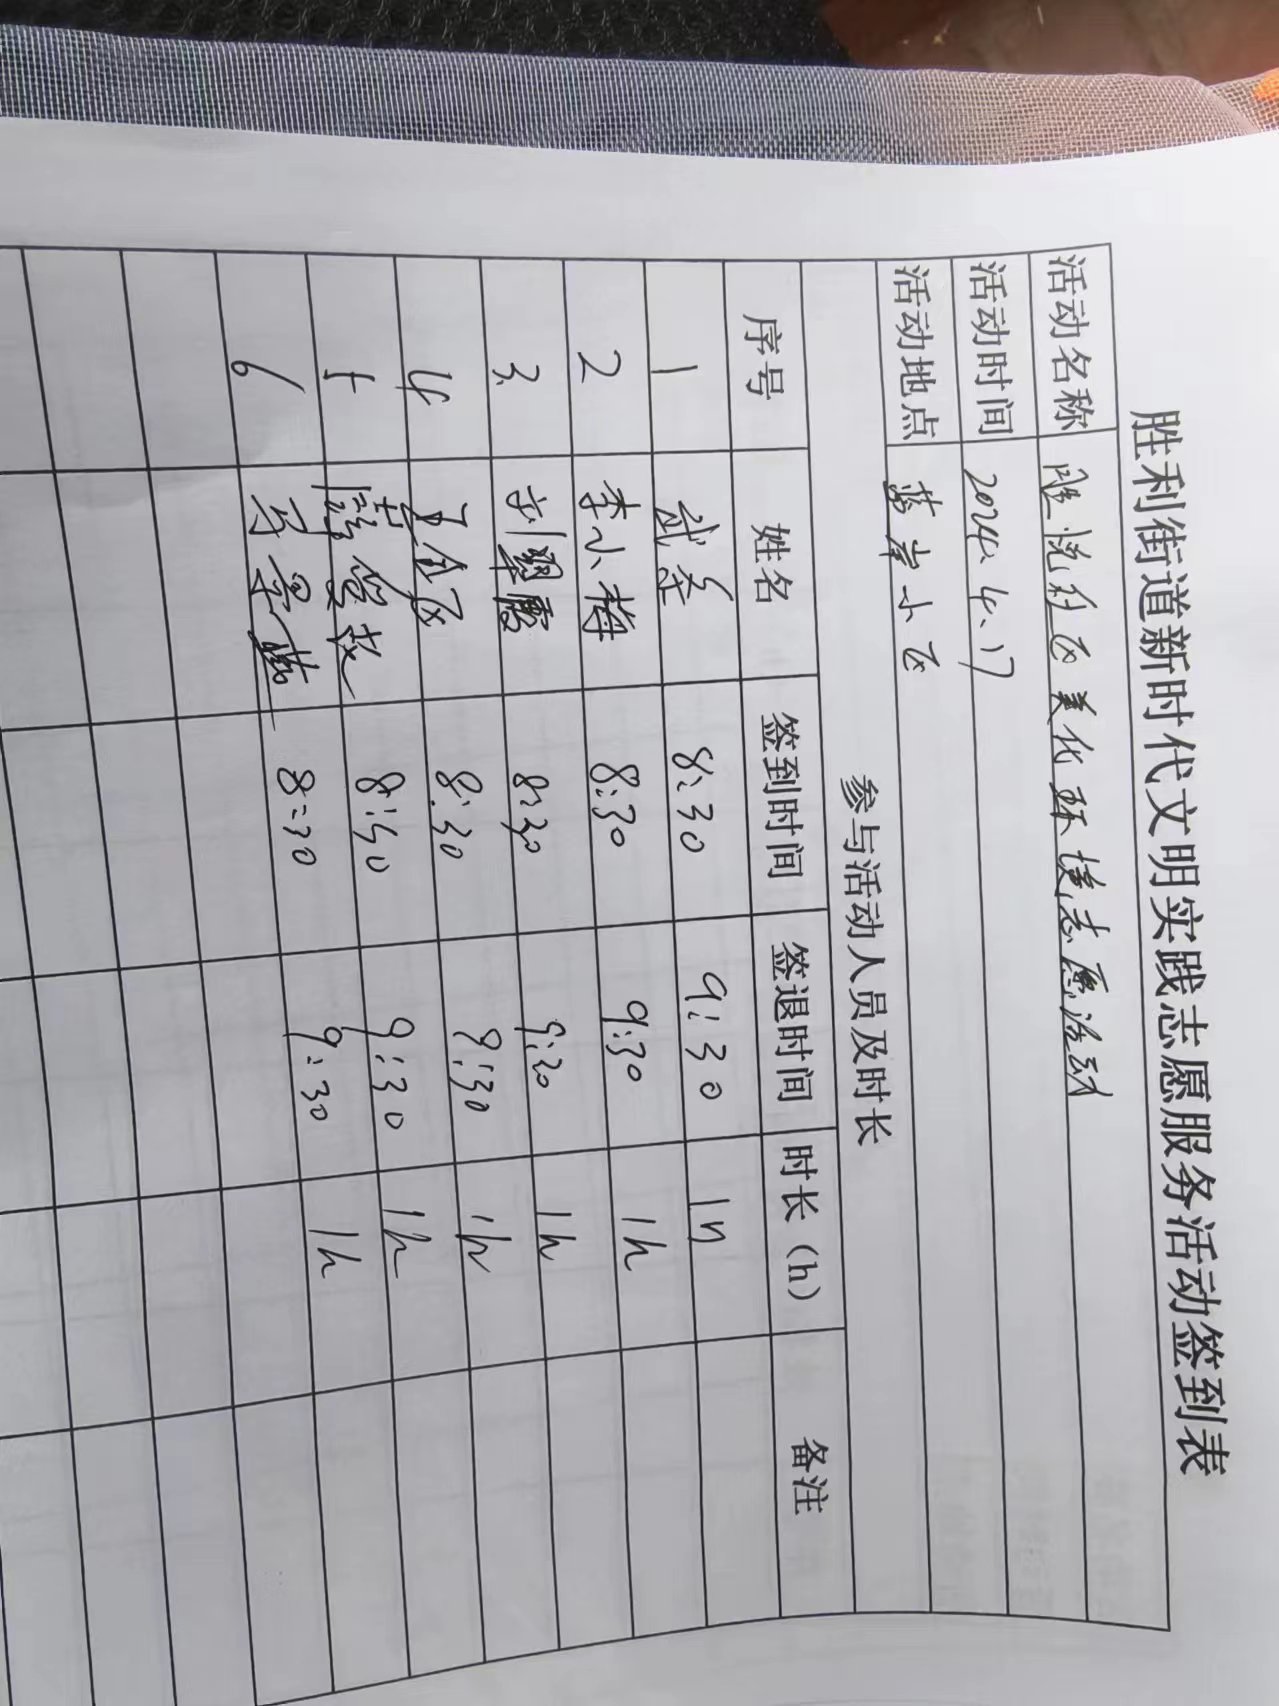 胜利街道新时代文明实践志愿服务活动签到表
活动名称 胜悦社区美化环境志愿活动
活动时间 2024.4.17
活动地点 蓝岸小区
参与活动人员及时长
序号 姓名 签到时间 签退时间 时长（h） 备注
1 8:30 9:30 1h
2 李小梅 8:30 9:30 1h
3 刘翠霞 8:30 9:30 1h
4 8:30 9:30 1h
5 8:30 9:30 1h
6 8:30 9:30 1h